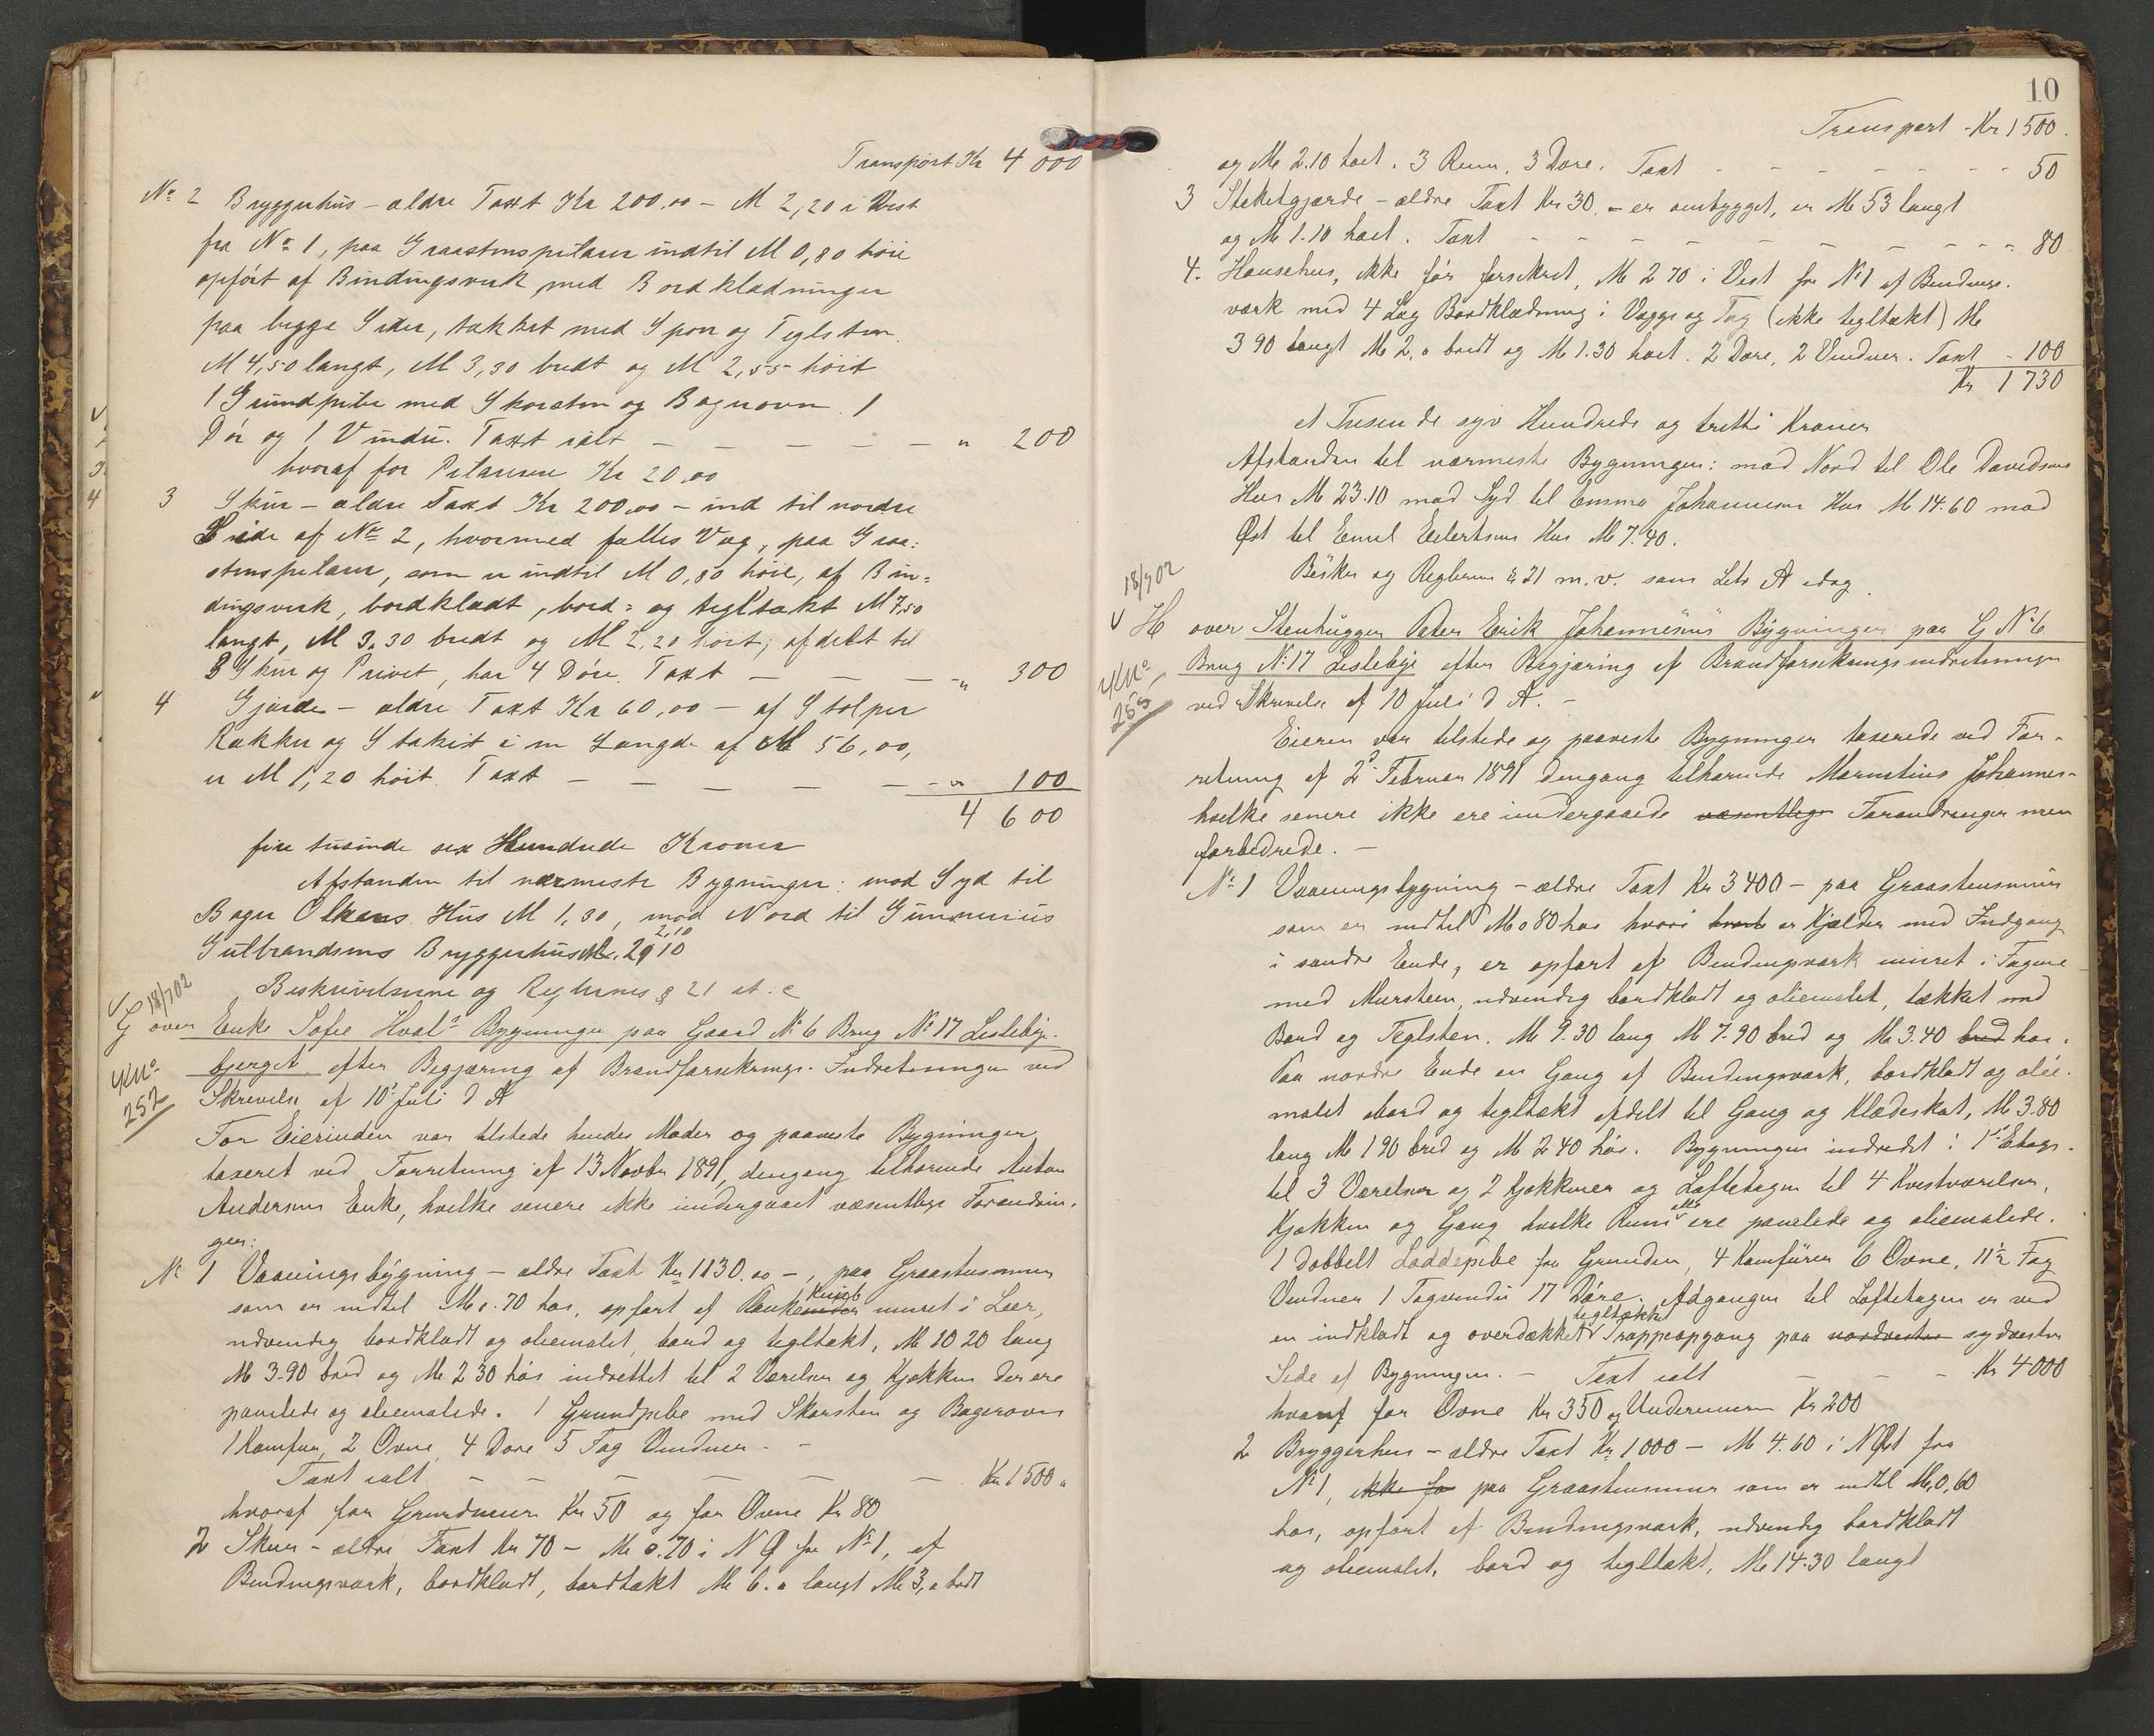 Transport Kr 4 000
No 2 Bryggerhus - ældre Taxt Kr 200,00 - M 2,20 i Vest
fra No 1, paa Graastenspilarer indtil M 0,80 høie
opført af Bindingsverk med Bordklædninger
paa begge Sider, tækket med Spon og Teglsten.
M 4,50 langt, M 3,30 bredt og M 2,55 høit
1 Grundpibe med Skorsten og Bagerovn. 1
Dør og 1 Vindu. Taxt ialt — — — — — " 200
hvoraf for Pilarerne Kr 20,00
3 Skur - ældre Taxt Kr 200,00 - ind til nordre
Side af No 2, hvormed fælles Væg, paa Graa:
stenspilarer, som er indtil M 0,80 høie, af Bin=
dingsverk, bordklædt, bord= og tegltækt M 7,50
langt, M 3,30 bredt og M 2,20 høit; afdelt til
3 Skur og Privet, har 4 Døre. Taxt — — — " 300
4 Gjærde - ældre Taxt Kr 60,00 - af Stolper
Rækker og Stakit i en Længde af M 56,00,
er M 1,20 høit. Taxt — — — — — " 100
4 600
fire tusinde sex Hundrede Kroner
Afstanden til nærmeste Bygninger: mod Syd til
Bager Olkens Hus M 1,30, mod Nord til Gunnerius
2,10
Gulbrandsens Bryggerhus M. 2,10
Beskrivelserne og Reglernes § 21 et. c
18/7 02
G over Enke Sofie Hvals Bygninger paa Gaard No 6 Brug No 17 Leslebye-
bjerget, efter Begjæring af Brandforsikrings-Indretningen ved
252
Skrivelse af 10' Juli d A
For Eierinden var tilstede hendes Moder og paaviste Bygninger
taxeret ved Forretning af 13 Novbr 1891, dengang tilhørende Anton
Andersens Enke, hvilke senere ikke undergaaet væsentlige Forandrin-
ger:
No 1 Vaaningsbygning - ældre Taxt Kr 1130.00 -, paa Graastensmur
som er indtil M 0.70 høi, opført af muret i Leer,
udvendig bordklædt og oliemalet, bord og tegltækt, M 10 20 lang
M 3.90 bred og M 2 30 høi indrettet til 2 Værelser og Kjøkken der ere
panelede og oliemalede. 1 Grundpibe med Skorsten og Bagerovn
1 Komfur, 2 Ovne, 4 Døre 5 Fag Vinduer. -
Taxt ialt — — — — — — Kr 1500 "
hvoraf for Grundmur Kr 50 og for Ovne Kr 80
2 Skur - ældre Taxt Kr 70 - M 0.70 i N Ø for No 1, af
Bindingsværk, bordklædt, bordtækt M 6.0 langt M 3,0 bredt
10
Transport - Kr 1500.
og M 2.10 høit. 3 Rum, 3 Døre. Taxt - - - - - - - 50
3 Staketgjærde - ældre Taxt Kr 30. - er ombygget, er M 53 langt
og M 1.10 høit. Taxt - - - - - - - - - 80
4. Hønsehus, ikke før forsikret, M 2 70 i Vest for No 1 af Bindings-
værk med 4 Lag Bordklædning i Vægge og Tag (ikke tegltækt) M
3 90 langt M 2,0 bredt og M 1.30 høit. 2 Døre, 2 Vinduer. Taxt - 100
Kr 1730
et Tusende syv Hundrede og tretti Kroner
Afstanden til nærmeste Bygninger: mod Nord til Ole Davidsens
Hus M 23.10 mod Syd til Emma Johannesens Hus M 14.60 mod
Øst til Emil Eilertsens Hus M 7.40.
Beskr og Reglernes § 21 m. v. som Litr A idag.
18/7 02
H over Stenhugger Peter Erik Johannesens Bygninger paa G No 6
Brug No 17 Leslebye efter Begjæring af Brandforsikringsindretningen
253
ved Skrivelse af 10 Juli d A. -
Eieren var tilstede og paaviste Bygninger taxerede ved For-
retning af 2' Februar 1891 dengang tilhørende Johannes-
hvilke senere ikke ere undergaaede væsentlige Forandringer men
forbedrede. -
No 1 Vaaningsbygning - ældre Taxt Kr 3400 - paa Graastensmur
som er indtil M 0 80 høi hvori er Kjælder med Indgang
i søndre Ende, er opført af Bindingsværk muret i Fagene
med Mursten, udvendig bordklædt og oliemalet, tækket med
Bord og Teglsten. M 9.30 lang M 7.90 bred og M 3.40 bred høi.
Paa nordre Ende en Gang af Bindingsværk, bordklædt og olie-
malet bord og tegltækt afdelt til Gang og Klædeskot, M 3.80
lang M 1 90 bred og M 2 40 høi. Bygningen indredet i 1ste Etage
til 3 Værelser og 2 Kjøkkener og Loftetagen til 4 Kvistværelser,
alle
Kjøkken og Gang hvilke Rum ere panelede og oliemalede.
1 dobbelt Loddepibe fra Grunden, 4 Komfürer 6 Ovne, 11½ Fag
Vinduer 1 Tagvindu 17 Døre. Adgangen til Loftetagen er ved
tegltækket
en indklædt og overdækket Trappeopgang paa nordvestre sydvestre
Side af Bygningen. - Taxt ialt - - - Kr 4000
hvoraf for Ovne Kr 350 og Undermuren Kr 200
2 Bryggerhus - ældre Taxt Kr 1000 - M 4.60 i N Øst fra
No 1, ikke for paa Graastensmur som er indtil M 0,60
høi, opført af Bindingsværk, udvendig bordklædt
og oliemalet, bord og tegltækt, M 14.30 langt